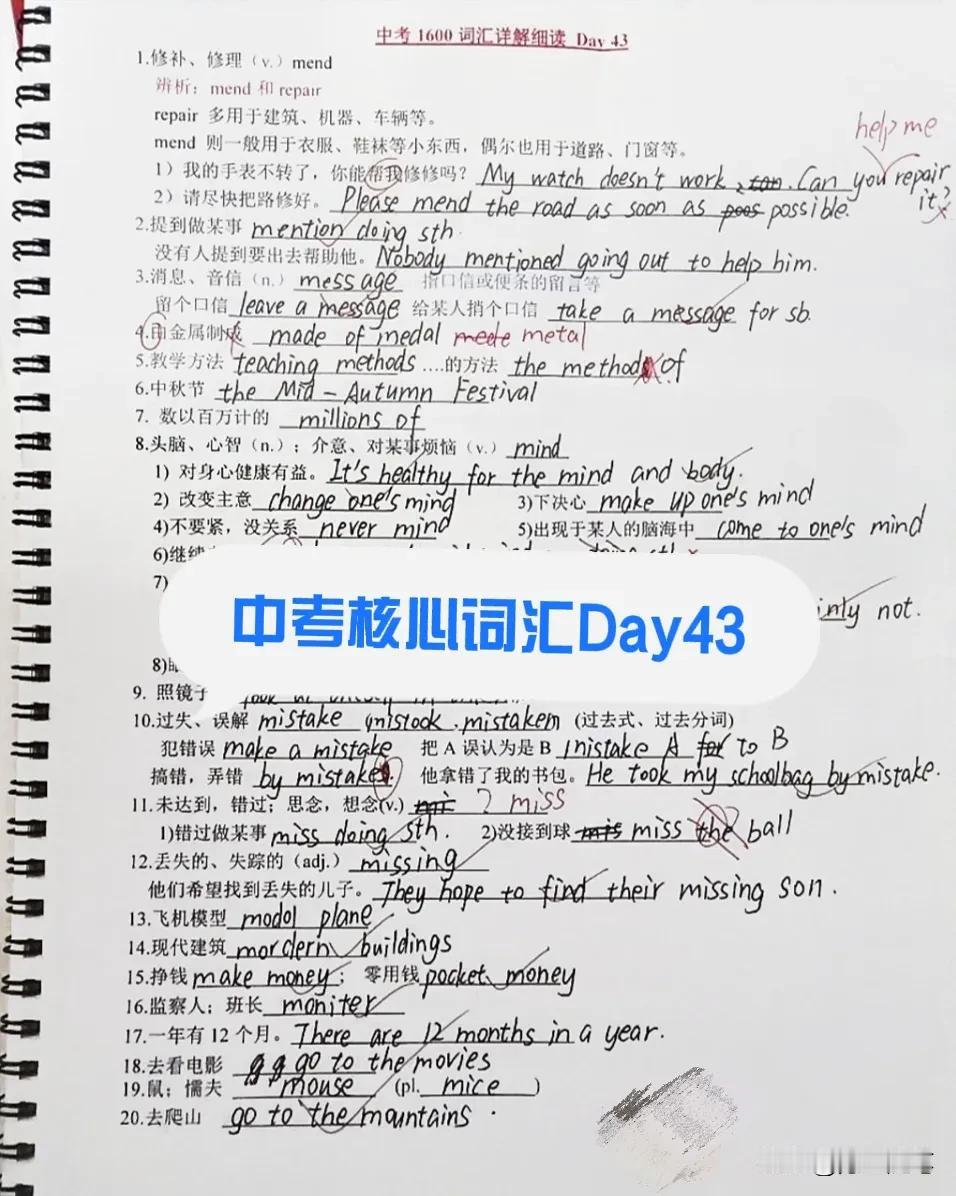 中考 1600 词汇详解细读 Day 43
1.修补、修理（v.）mend
辨析：mend 和 repair
repair 多用于建筑、机器、车辆等。
mend 则一般用于衣服、鞋袜等小东西，偶尔也用于道路、门窗等。
help me
1）我的手表不转了，你能帮我修修吗？ My watch doesn't work. Can you repair it?
2）请尽快把路修好。 Please mend the road as soon as poos possible.
2.提到做某事 mention doing sth
没有人提到要出去帮助他。Nobody mentioned going out to help him.
3.消息、音信（n.）message 指口信或便条的留言等
留个口信 leave a message 给某人捎个口信 take a message for sb.
4.由金属制成 made of medal mede metal
5.教学方法 teaching methods ....的方法 the method of
6.中秋节 the Mid-Autumn Festival
7. 数以百万计的 millions of
8.头脑、心智（n.）；介意、对某事烦恼（v.）mind
1) 对身心健康有益。It's healthy for the mind and body.
2) 改变主意 change one's mind 3)下决心 make up one's mind
4)不要紧，没关系 never mind 5)出现于某人的脑海中 come to one's mind
6)继续
7)
not.
中考核心词汇Day43
8)
9. 照镜子
10.过失、误解 mistake mistook .mistaken (过去式、过去分词)
犯错误 make a mistake 把 A 误认为是 B mistake A for to B
搞错，弄错 by mistake 他拿错了我的书包。He took my schoolbag by mistake.
11.未达到，错过；思念，想念(v.) mi ? miss
1)错过做某事 miss doing sth. 2)没接到球 mis miss the ball
12.丢失的、失踪的（adj.）missing
他们希望找到丢失的儿子。They hope to find their missing son.
13.飞机模型 modol plane
14.现代建筑 mordern buildings
15.挣钱 make money； 零用钱 pocket money
16.监察人；班长 moniter
17.一年有 12 个月。There are 12 months in a year.
18.去看电影 g g go to the movies
19.鼠；懦夫 mouse (pl. mice )
20.去爬山 go to the mountains.